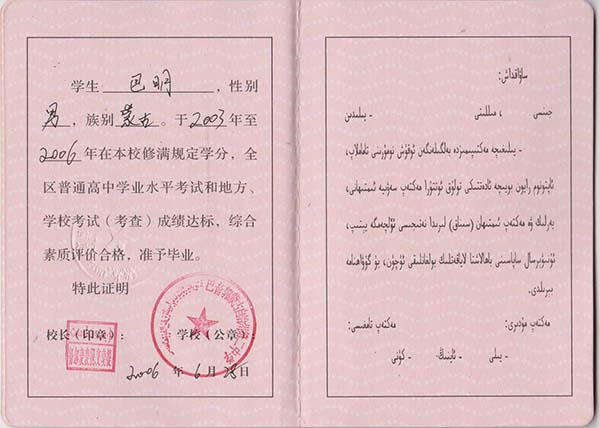 学生 巴明 ，性别
男 ，族别 蒙古 。于 2003 年至
2006 年在本校修满规定学分，全
区普通高中学业水平考试和地方、
学校考试（考查）成绩达标，综合
素质评价合格，准予毕业。
特此证明
校长（印章）： 学校（公章）：
2006 年 6 月 28 日
ساۋاقداش:
جىنسى ، مىللىتى - يىلىدىن
- يىلىغىچە مەكتىپىمىزدە بەلگىلەنگەن ئوقۇش نومۇرىنى تاماملاپ،
ئاپتونوم رايون بويىچە ئادەتتىكى تولۇق ئوتتۇرا مەكتەپ سەۋىيە ئىمتىھانى،
يەرلىك ۋە مەكتەپ ئىمتىھان (سىناق) لىرىدا نەتىجىسى ئۆلچەمگە يېتىپ،
ئۇنىۋېرسال ساپاسىنى باھالاشتا لاياقەتلىك بولغانلىقى ئۈچۈن، بۇ گۇۋاھنامە
بېرىلدى.
مەكتەپ مۇدىرى: مەكتەپ تامغىسى:
- يىلى - ئاينىڭ - كۈنى